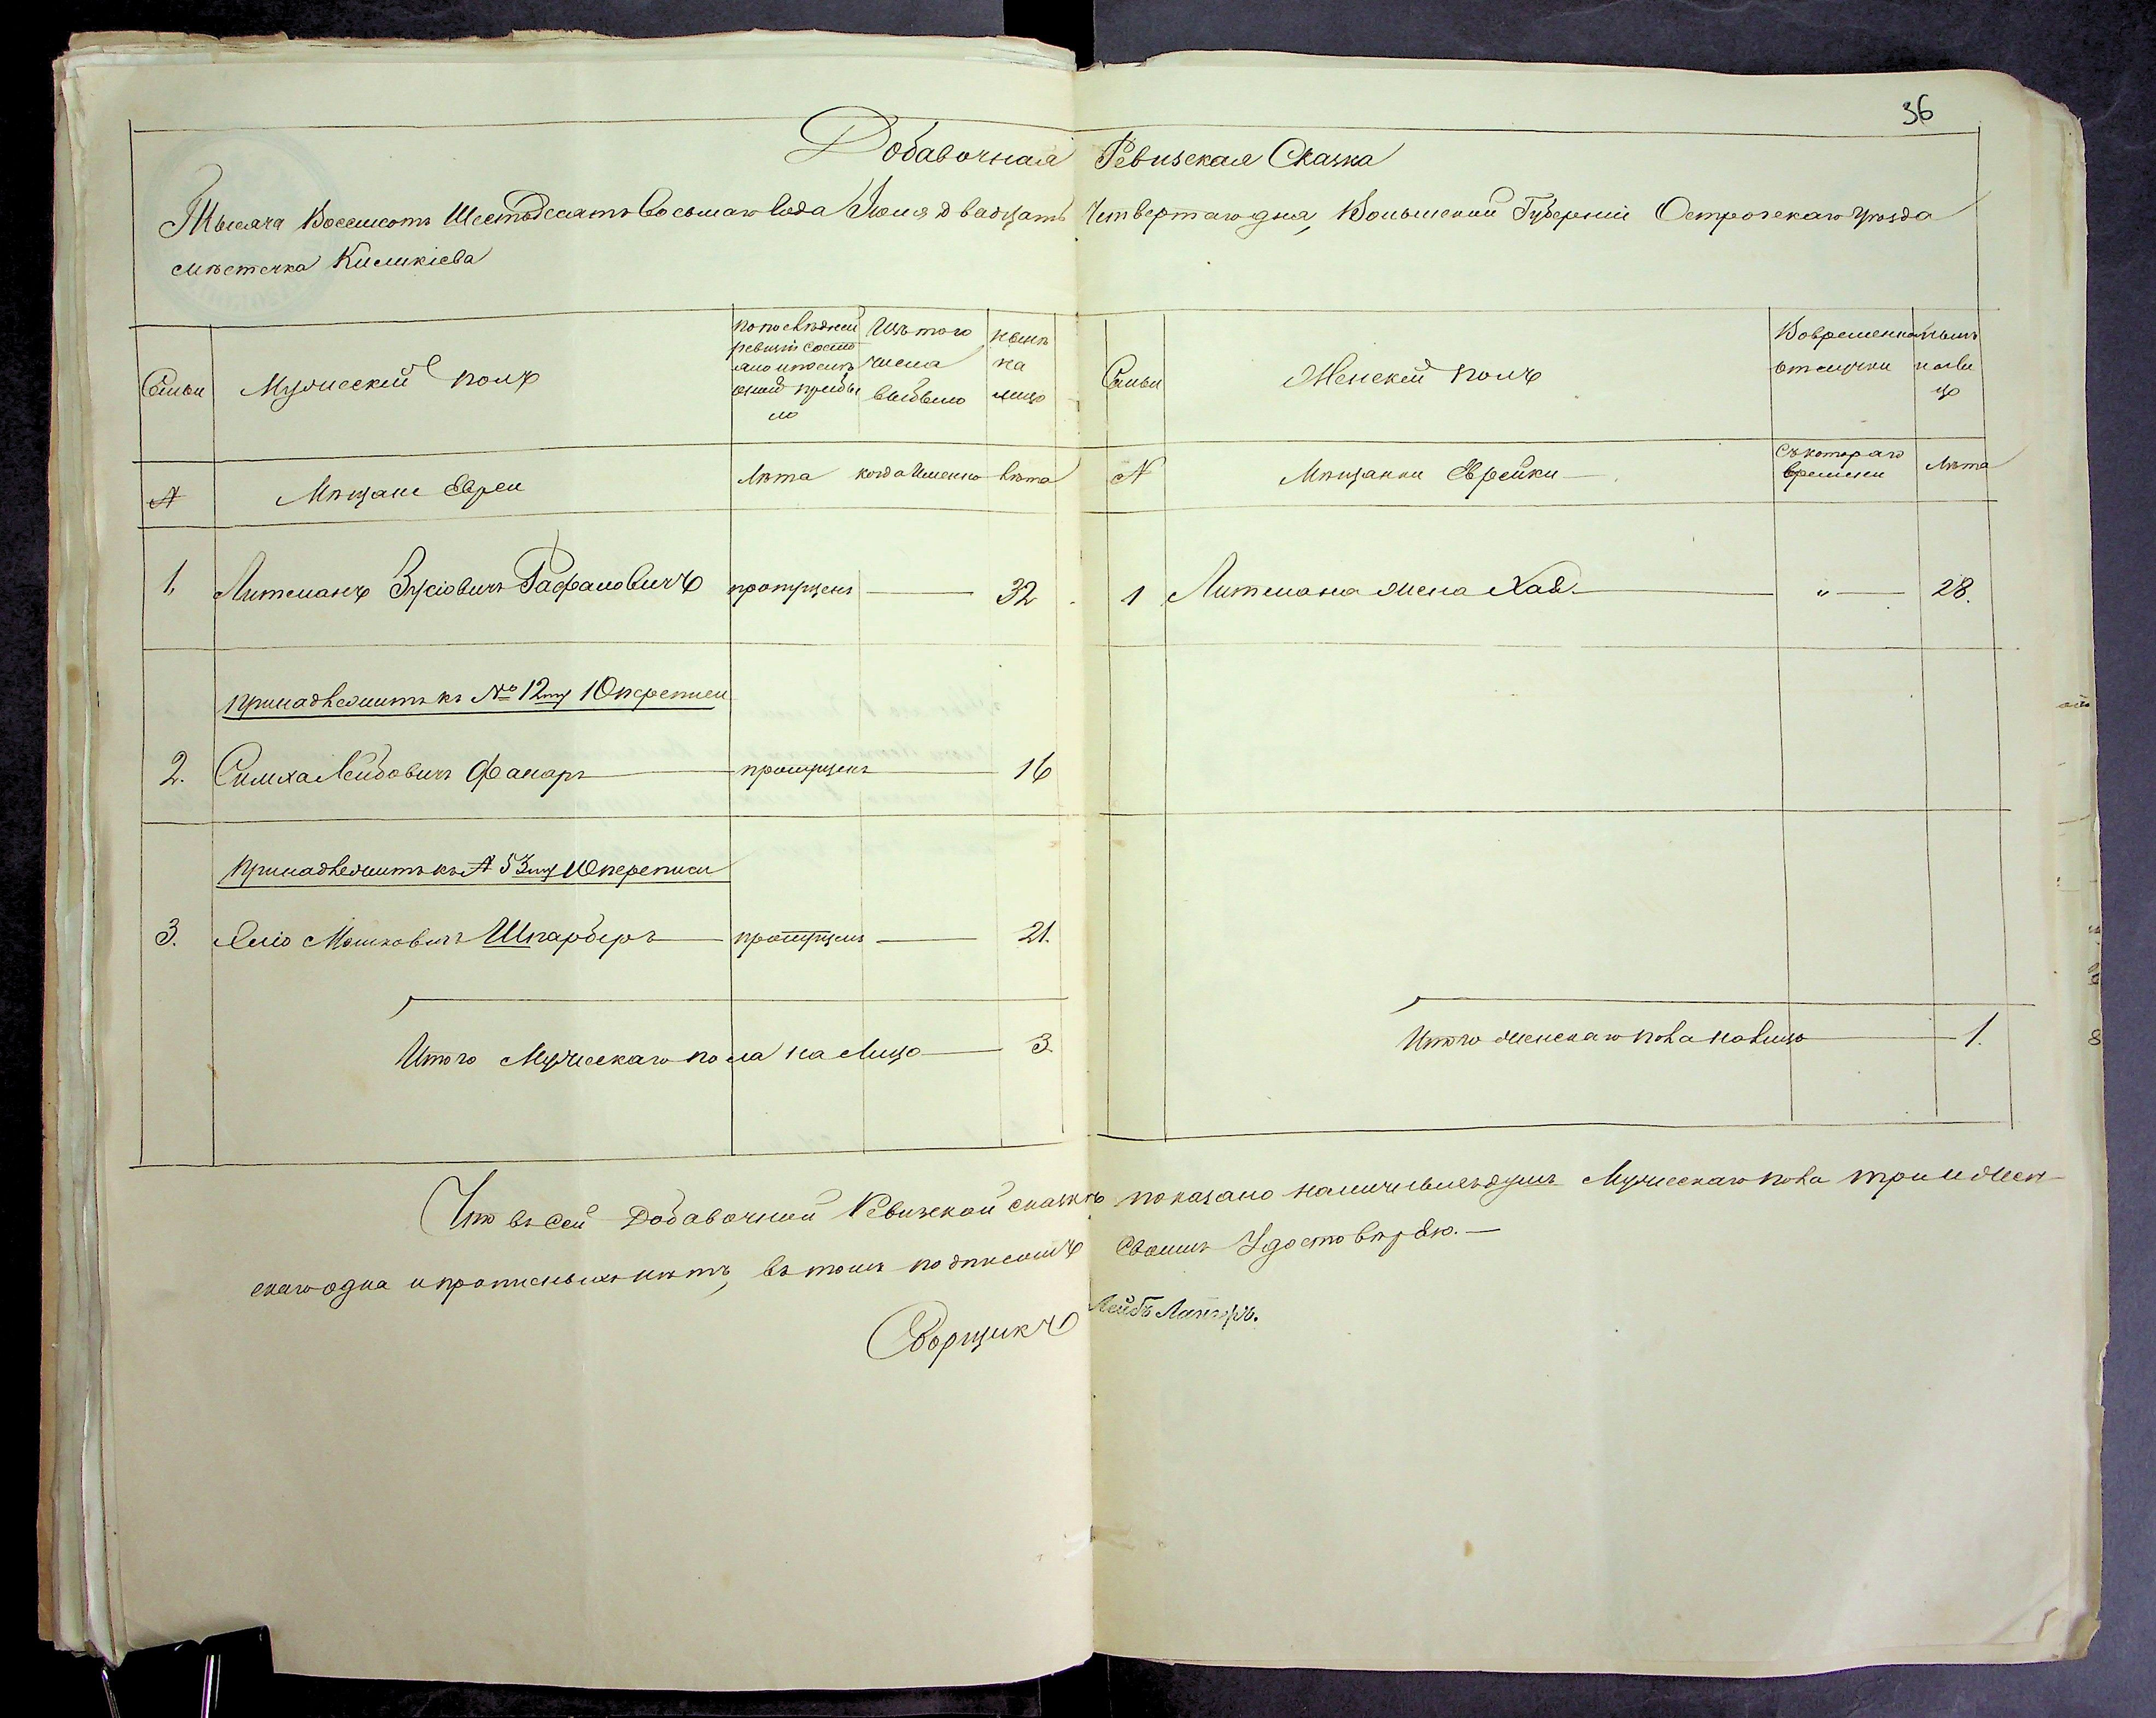 36
Добавочная Ревизская Сказка
Тысяча Восемсотъ Шестьдесятъ восьмаго года Июня двадцать Четвертаго дня, Волынской Губерніи Острогскаго уѣзда
мѣстечка Киликіева
Семьи
Мужеский полъ
по последней ревизіи состояло и после оной прибыло
Изъ того числа выбыло
нынѣ на лицо
Семьи
Женский полъ
Во временной отлучки
нынѣ на лицо
№
Мѣщане Евреи
Лѣта
когда именно
лѣта
№
Мѣщанки Еврейки
Съ котораго времени
Лѣта
1. Литманъ Зусіовичъ пропущенъ — 32
1 Литмана жена Хая — " — 28.
принадлежитъ къ № 12му 10 переписи
2. Симха Лейбовичъ Фанаръ — пропущенъ — 16
принадлежитъ къ № 53му 10 переписи
3. Мошковичъ Шпарберъ — пропущенъ — 21.
Итого Мужескаго пола на лицо — 3
Итого женскаго пола на лицо — 1.
Что въ сей Добавочной Ревизской сказкѣ показано наличныхъ душъ Мужескаго пола три и жен-
скаго одна и прописныхъ нѣтъ, въ томъ подписомъ Своимъ Удостовѣряю. —
Сборщикъ Лейбъ